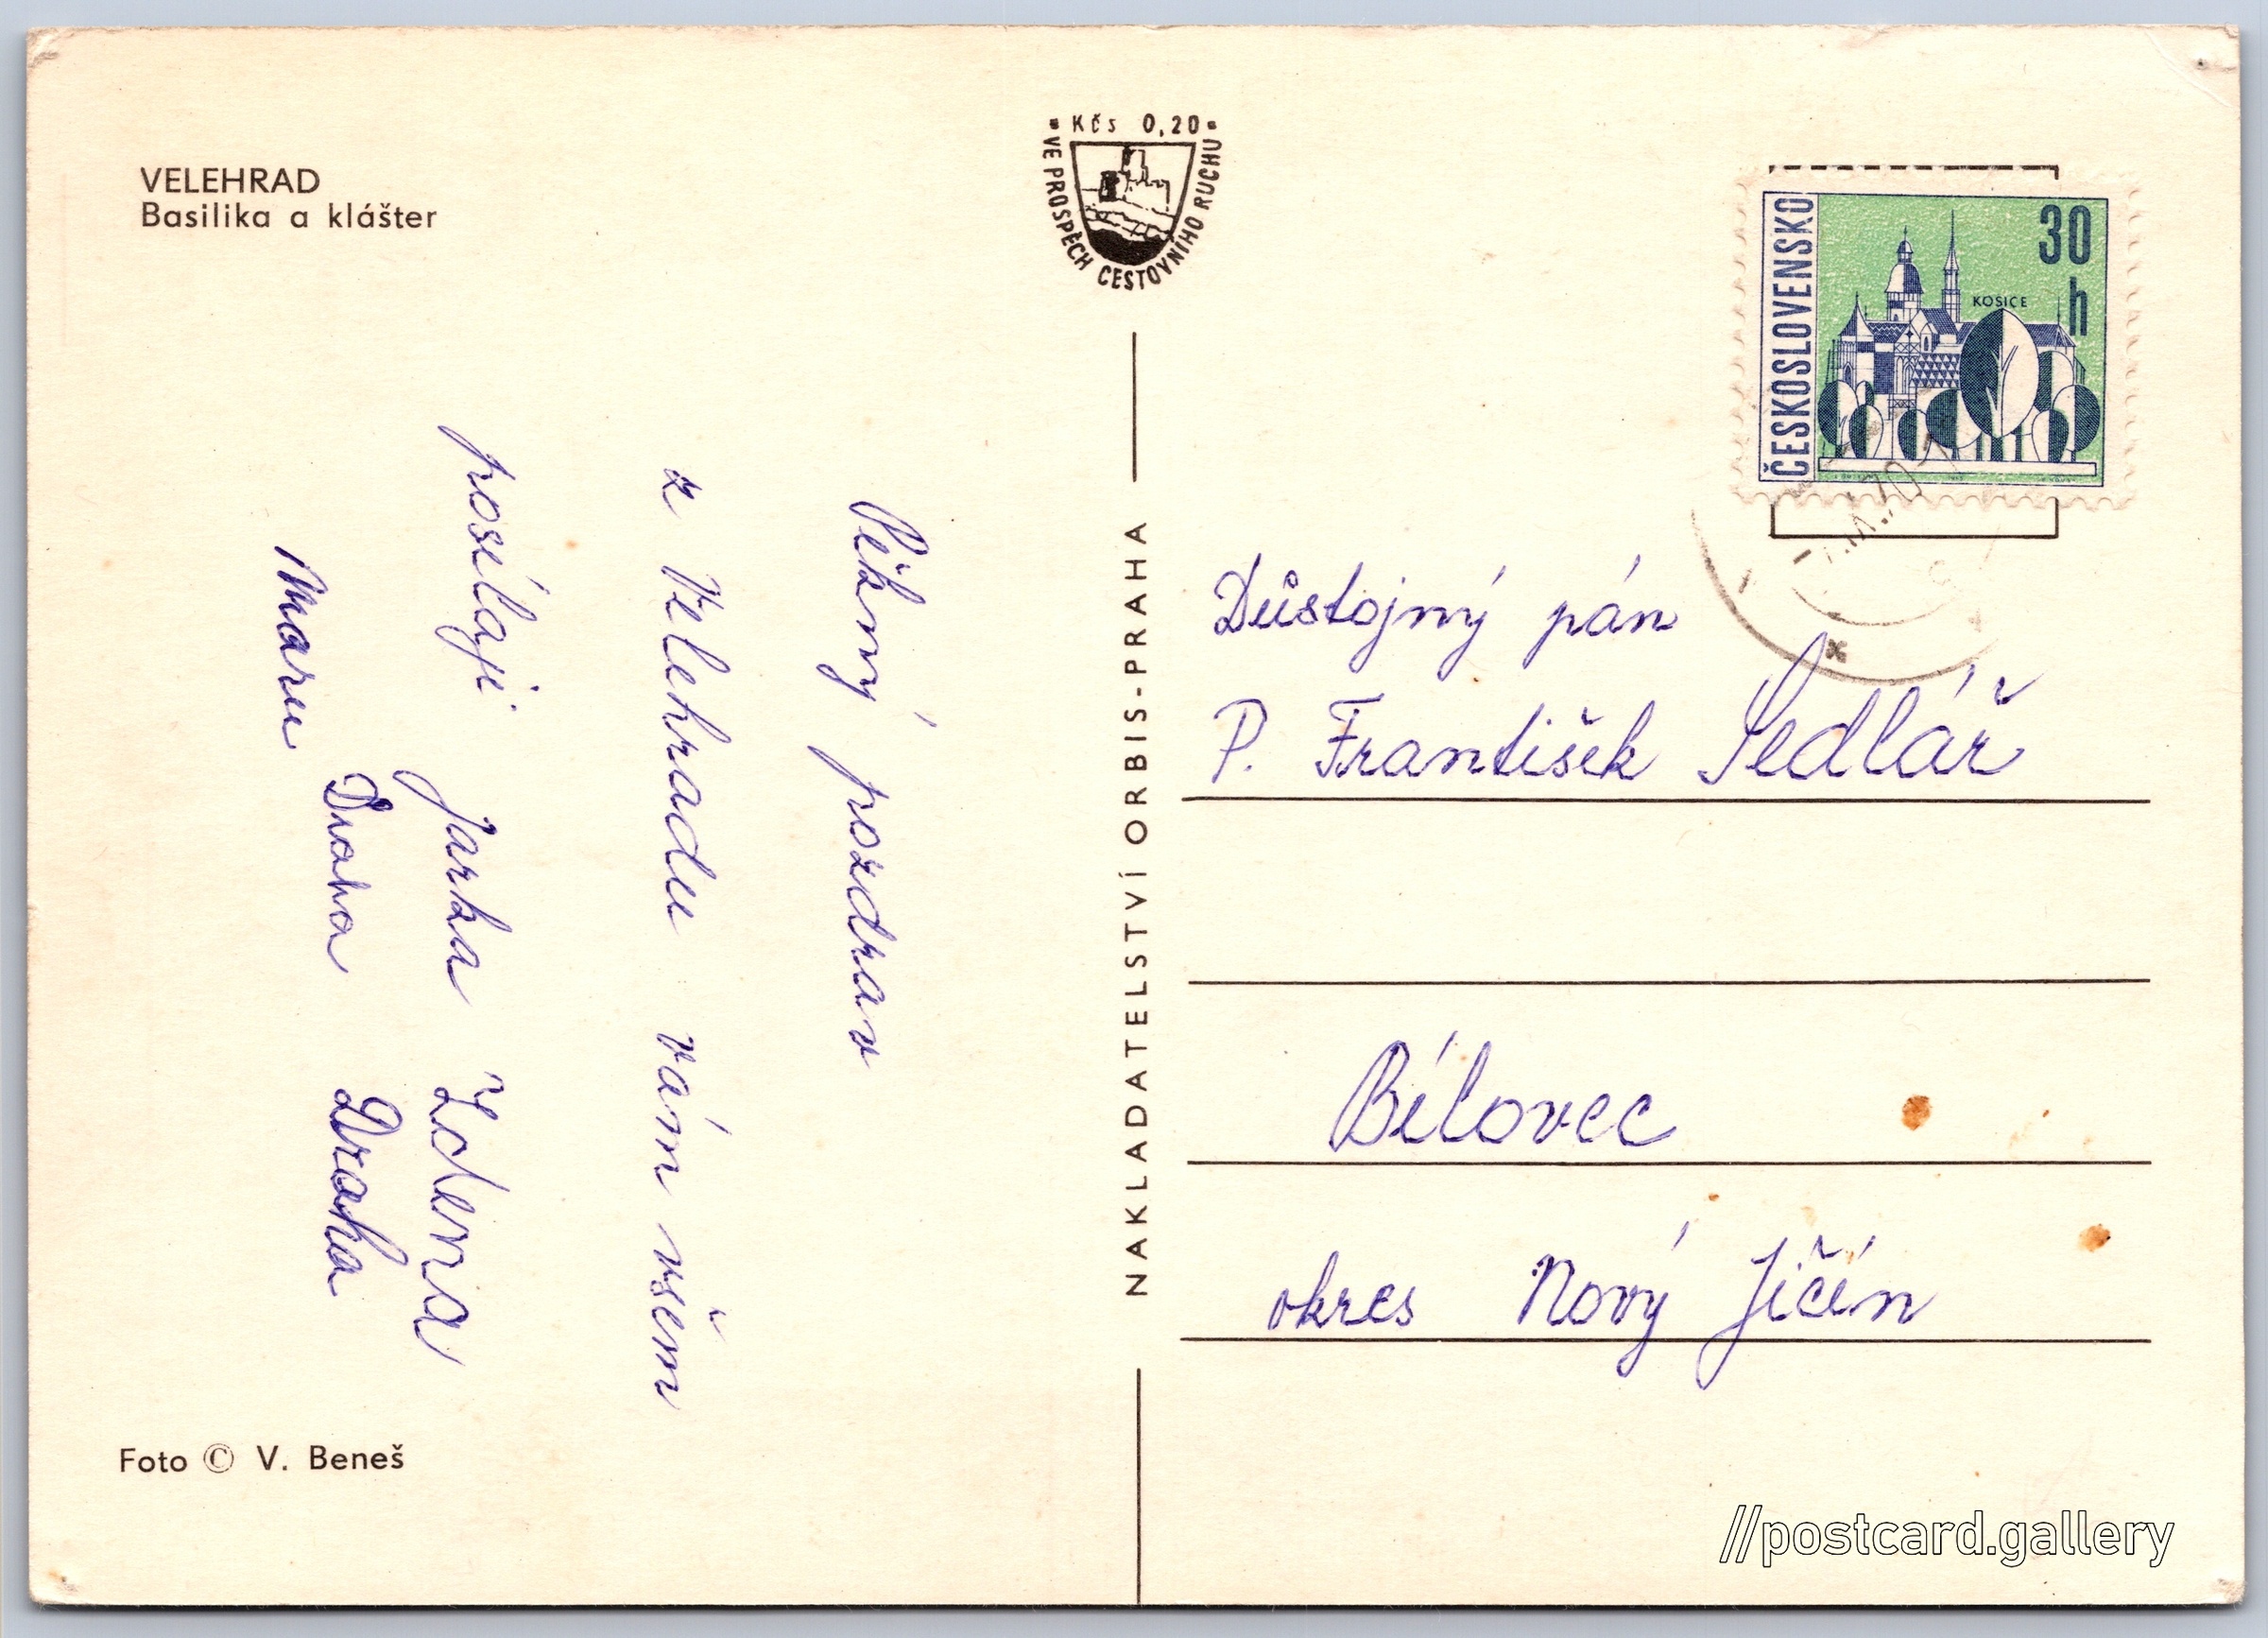 VELEHRAD
Basilika a klášter
Pěkný pozdrav
z Velehradu vám všem
posílají Jarka Zdena
Maru Draha Draha
Foto © V. Beneš
Kčs 0,20
VE PROSPĚCH CESTOVNÍHO RUCHU
NAKLADATELSTVÍ ORBIS-PRAHA
ČESKOSLOVENSKO
30 h
KOŠICE
Důstojný pán
P. František Sedlář
Bílovec
okres Nový Jičín
//postcard.gallery